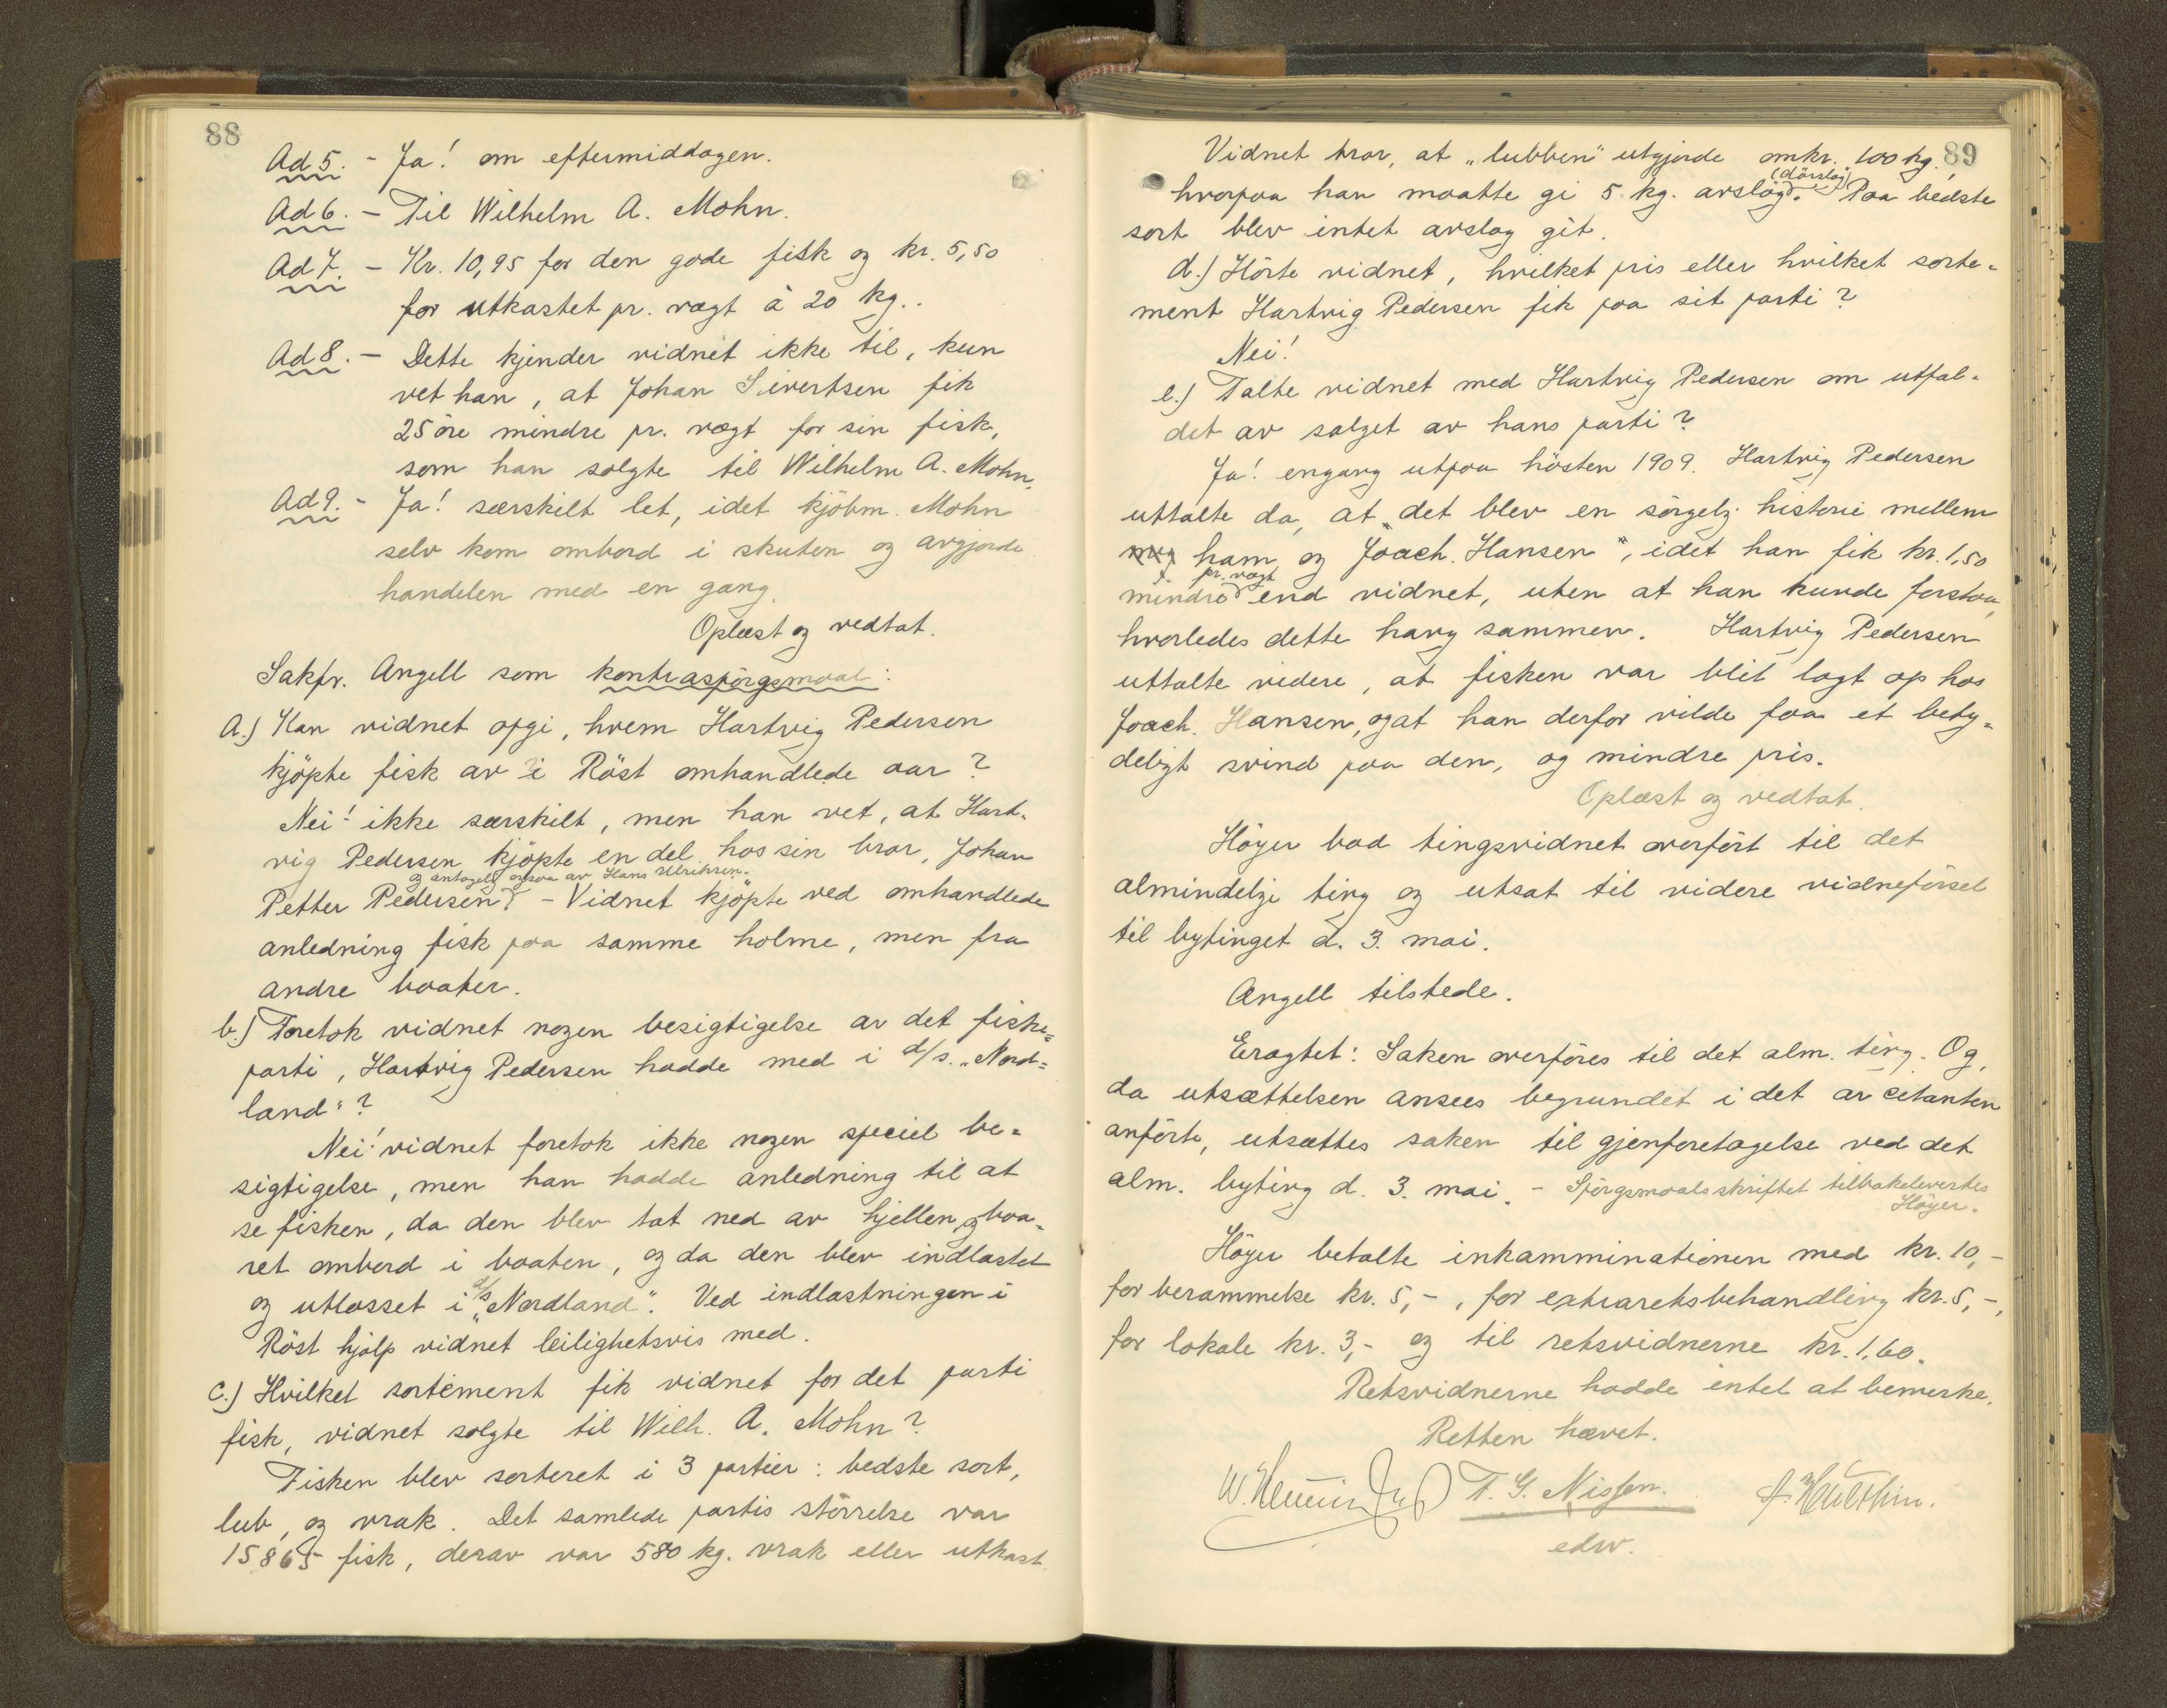 88
Ad 5. - Ja! om eftermiddagen.
Ad 6. - Til Wilhelm A. Mohn.
Ad 7. - Kr. 10,95 for den gode fisk og kr. 5,50
for utkastet pr. vegt à 20 kg..
Ad 8. - Dette kjender vidnet ikke til, kun
vet han, at Johan Sivertsen fik
25 øre mindre pr. vegt for sin fisk,
som han solgte til Wilhelm A. Mohn.
Ad 9. - Ja! særskilt let, idet kjöbm. Mohn
selv kom ombord i skuten og avgjorde
handelen med en gang.
Oplæst og vedtat.
Sakfr. Angell som kontraspörgsmaal:
a.) Kan vidnet opgi, hvem Hartvig Pedersen
kjöpte fisk av i Röst omhandlede aar?
Nei! ikke særskilt, men han vet, at Hart-
vig Pedersen kjöpte en del hos sin bror, Johan
og antagelig ogsaa av Hans Ulriksen.
Petter Pedersen. - Vidnet kjöpte ved omhandlede
anledning fisk paa samme holme, men fra
andre baater.
b.) Foretok vidnet nogen besigtigelse av det fiske=
parti, Hartvig Pedersen hadde med i d/s. „Nord=
land"?
Nei! vidnet foretok ikke nogen speciel be=
sigtigelse, men han hadde anledning til at
se fisken, da den blev tat ned av hjellen og baa-
ret ombord i baaten, og da den blev indlastet
og utlosset i d/s „Nordland". Ved indlastningen i
Röst hjalp vidnet leilighetsvis med.
c.) Hvilket sortement fik vidnet for det parti
fisk, vidnet solgte til Wilh. A. Mohn?
Fisken blev sorteret i 3 partier: bedste sort,
lub, og vrak. Det samlede partis störrelse var
15865 fisk, derav var 580 kg. vrak eller utkast.
89
Vidnet tror, at „lubben" utgjorde omkr. 100 kg.,
(dörslag)
hvorpaa han maatte gi 5 kg. avslag. Paa bedste
sort blev intet avslag git.
d.) Hörte vidnet, hvilket pris eller hvilket sorte=
ment Hartvig Pedersen fik paa sit parti?
Nei!
e.) Talte vidnet med Hartvig Pedersen om utfal-
det av salget av hans parti?
Ja! engang utpaa hösten 1909. Hartvig Pedersen
uttalte da, at „det blev en sörgelig historie mellem
ham og Joach. Hansen", idet han fik kr. 1,50
pr. vegt
mindre end vidnet, uten at han kunde forstaa,
hvorledes dette hang sammen. Hartvig Pedersen
uttalte videre, at fisken var blit lagt op hos
Joach. Hansen, og at han derfor vilde faa et bety=
deligt svind paa den, og mindre pris.
Oplæst og vedtat.
Höyer bad tingsvidnet overfört til det
almindelige ting og utsat til videre vidneförsel
til bytinget d. 3. mai.
Angell tilstede.
Eragtet: Saken overföres til det alm. ting. Og,
da utsættelsen ansees begrundet i det av citanten
anförte, utsættes saken til gjenforetagelse ved det
alm. byting d. 3. mai. - Spörgsmaalsskriftet tilbakelevertes
Höyer.
Höyer betalte inkamminationen med kr. 10,-
for berammelse kr. 5,-, for extraretsbehandling kr. 5,-,
for lokale kr. 3,- og til retsvidnerne kr. 1,60.
Retsvidnerne hadde intet at bemerke.
Retten hævet.
T. G. Nissen.
edsv.